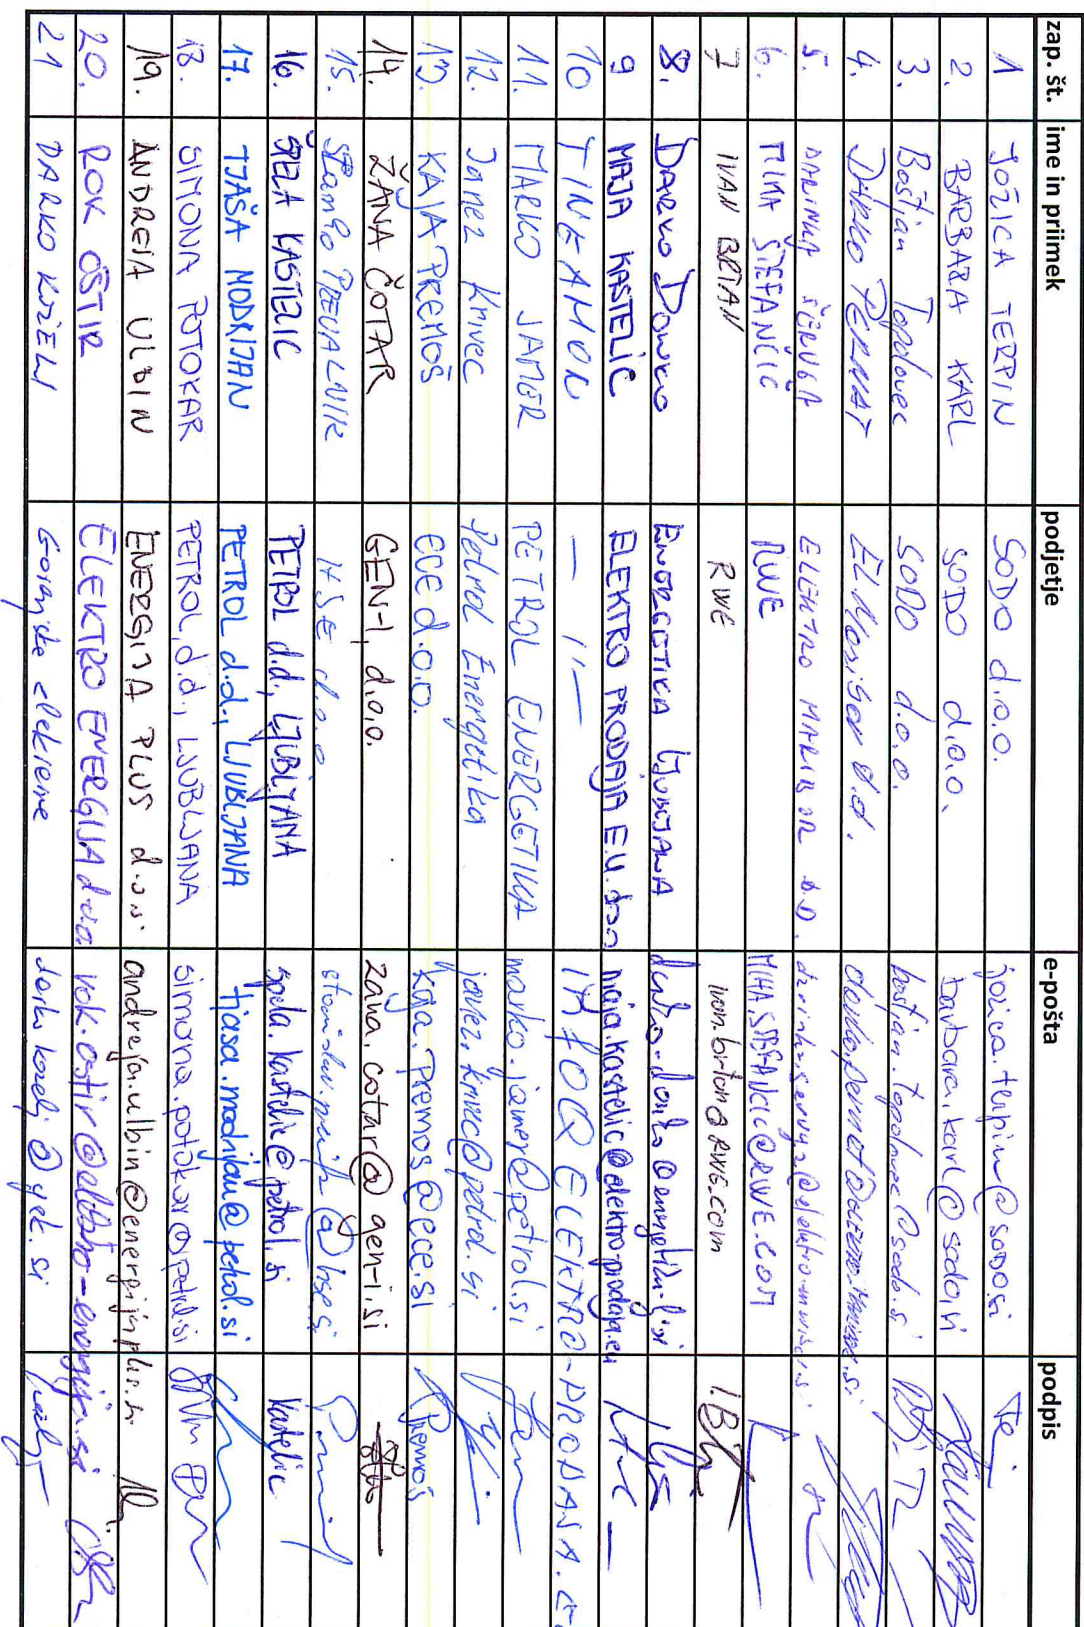 zap. št. ime in priimek podjetje e-pošta podpis
1 JOŽICA TERPIN SODO d.o.o. jozica.terpin@sodo.si
2. BARBARA KARL SODO d.o.o. barbara.karl@sodo.si
3. Boštjan Topolovec SODO d.o.o. bostjan.topolovec@sodo.si
4. DARKO PERNAT d.d.
5. DARINKA ŠERUGA ELEKTRO MARIBOR D.D.
6. MIHA ŠTEFANČIČ RWE MIHA.STEFANCIC@RWE.COM
7 IVAN BRTAN RWE ivan.brtan@RWE.COM I.B
8. DARKO DONKO ENERGETIKA LJUBLJANA
9 MAJA KASTELIC ELEKTRO PRODAJA E.U. maja.kastelic@elektroprodaja.eu
10 — 11 —
11. MARKO JAMER PETROL ENERGETIKA marko.jamer@petrol.si
12. Janez Krivec Petrol Energetika janez.krivec@petrol.si
13. KAJA PREMOŠ ECE d.o.o. kaja.premos@ece.si Premoš
14. ŽANA ČOTAR GEN-I, d.o.o. zana.cotar@gen-i.si
15. HSE d.o.o @hse.si
16. ŠPELA KASTELIC PETROL d.d., LJUBLJANA spela.kastelic@petrol.si Kastelic
17. TJAŠA MODRIJAN PETROL d.d., LJUBLJANA tjasa.modrijan@petrol.si
18. SIMONA POTOKAR PETROL, d.d., LJUBLJANA simona.potokar@petrol.si
19. ANDREJA ULBIN ENERGIJA PLUS d.o.o. andreja.ulbin@energijaplus.si
20. ROK OŠTIR ELEKTRO ENERGIJA d.o.o. rok.ostir@elektro-energija.si
21 DARKO KOŽELJ Gorenjske elektrarne